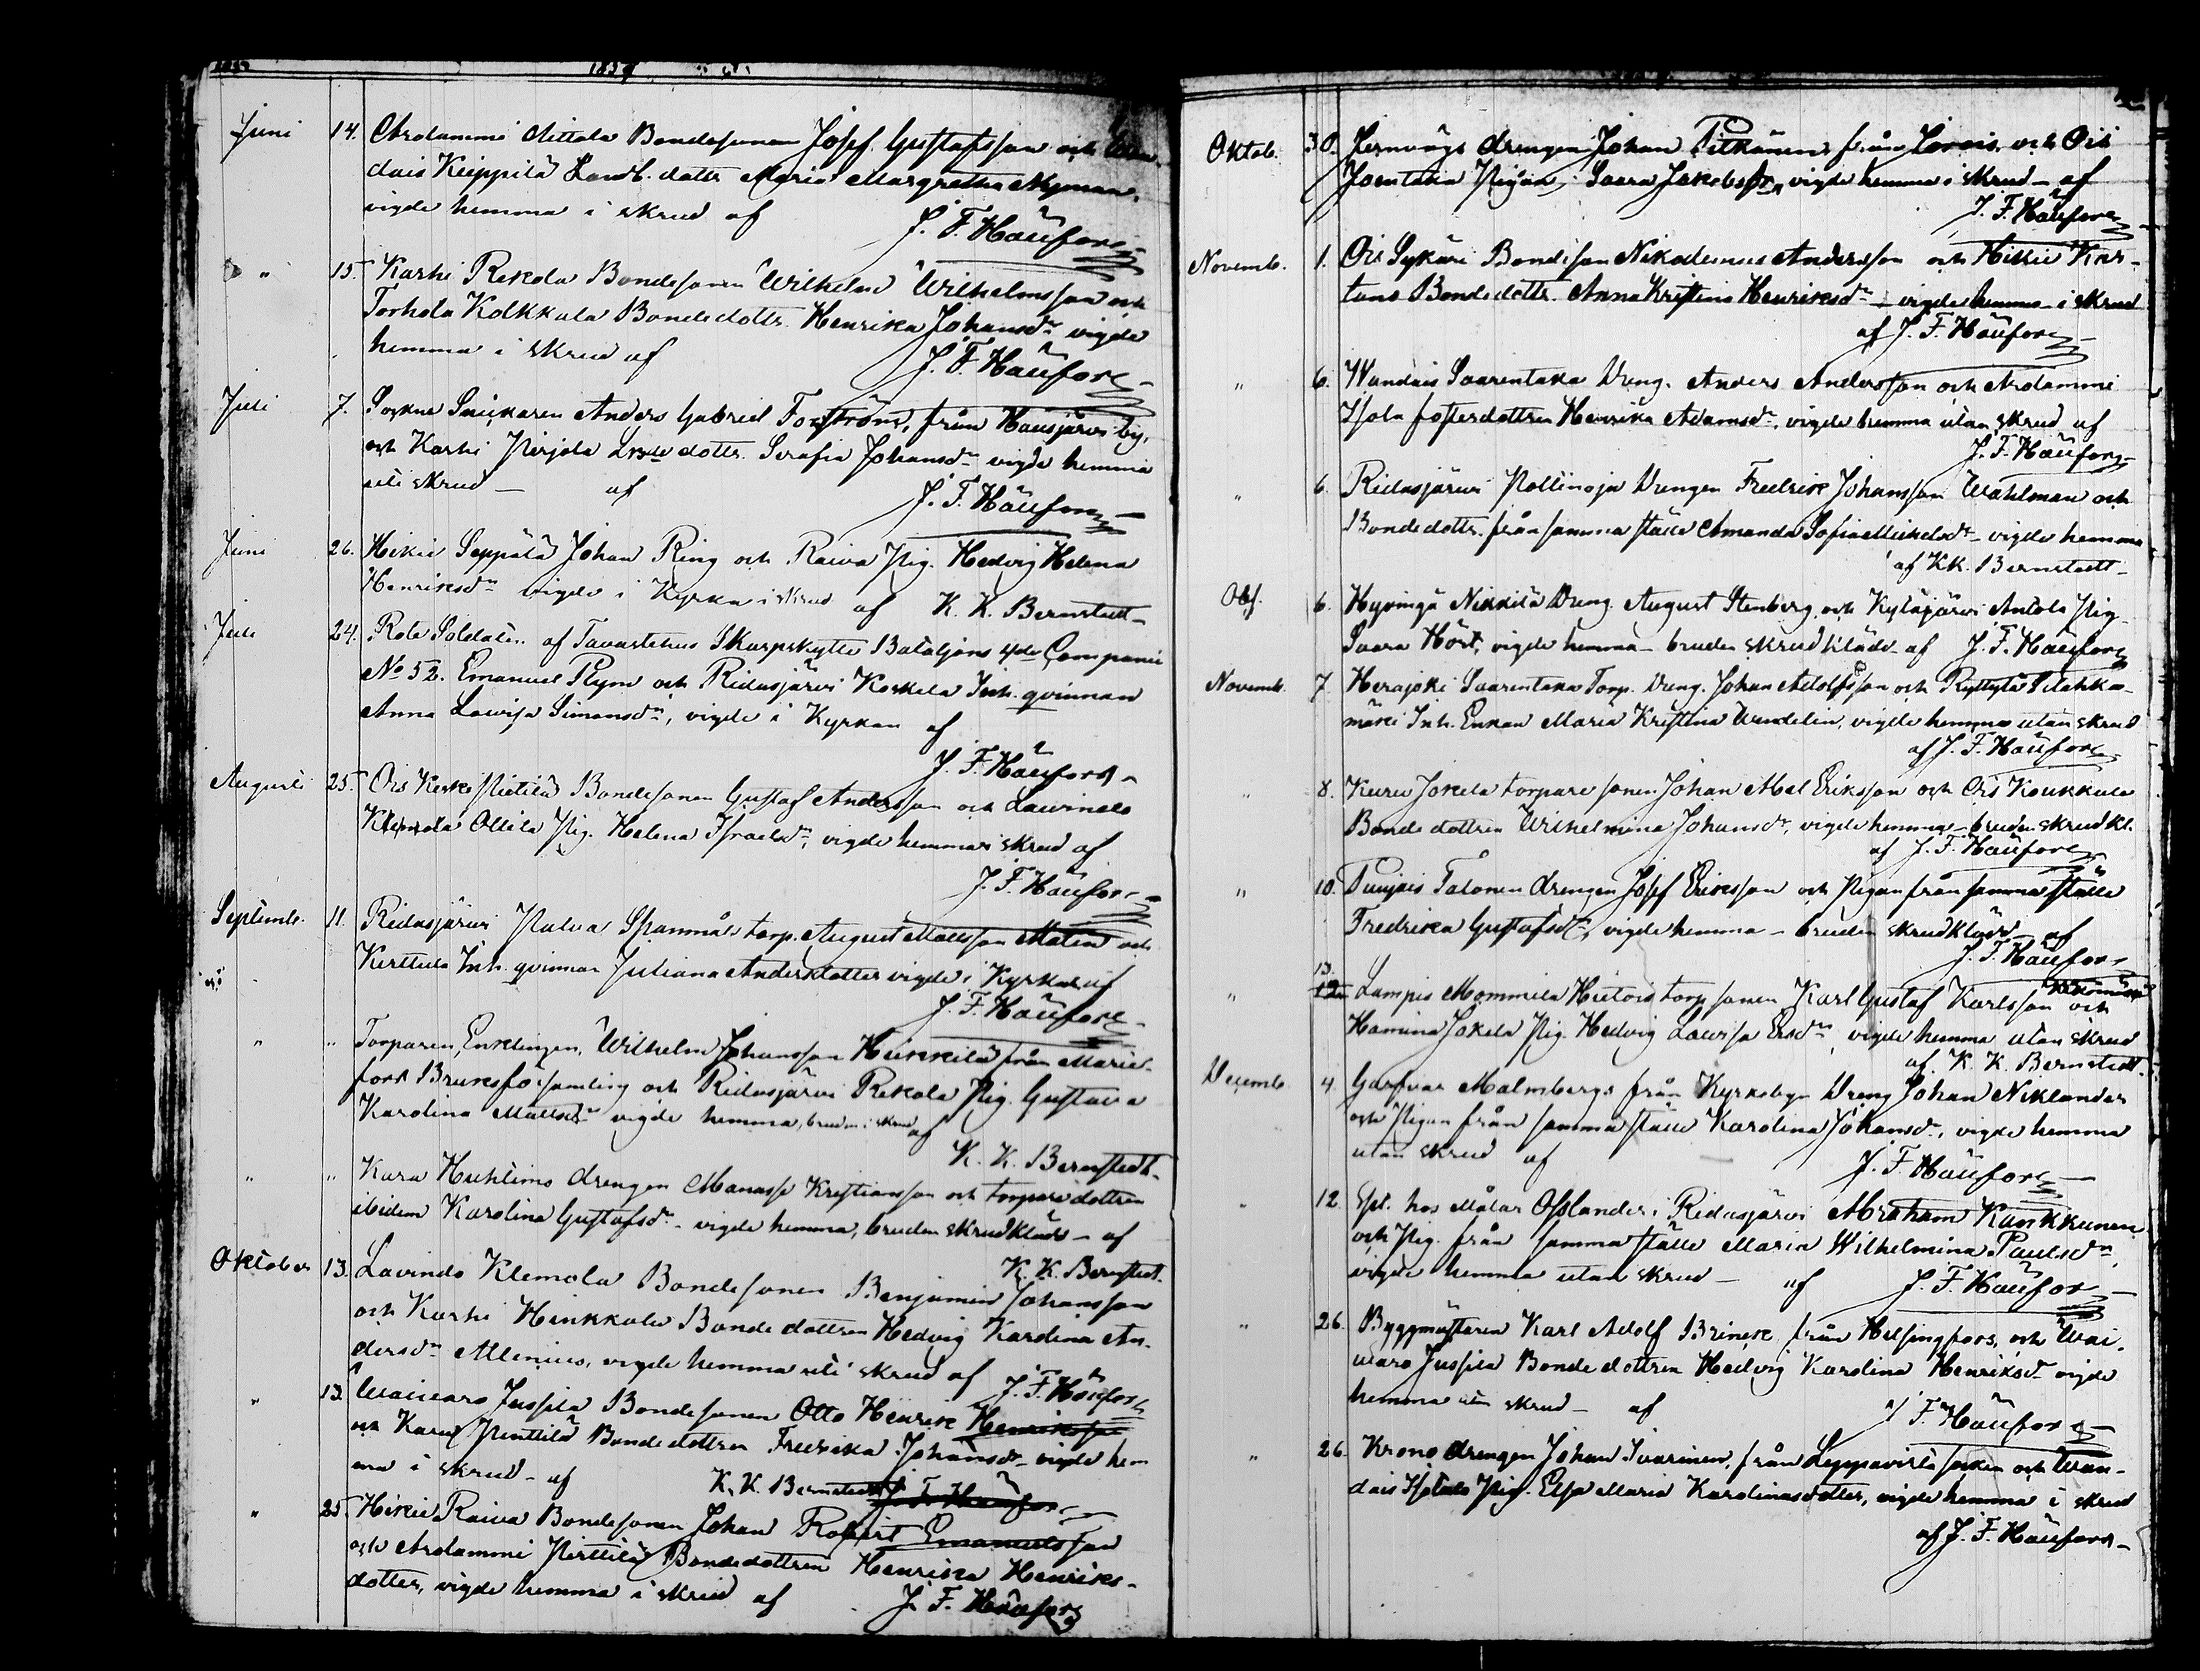 1859
Juni 14. Arolammi Aittola Bondesonen Josef Gustafsson och Wan-
dais Keippilä Landb. dottr Maria Margretha Nyman,
vigde hemma i skrud af
J. F. Häufors
" 15. Karhi Rekola Bondesonen Wilhelm Wilhelmsson och
Torhola Kolkkala Bondedottr. Henrika Johansdr vigde
hemma i skrud af
J. F. Häufors
Juli 7. Sockne Snickaren Anders Gabriel Forström, från Hausjärvi by,
och Karhi Pirjola dottr. Serafia Johansdr vigde hemma
uti skrud — af
J. F. Häufors
Juni 26. Hikiä Seppälä Johan Ring och Raiva Pig. Hedvig Helena
Henriksdr vigde i Kyrka i skrud af K. K. Bernstedt
Juli 24. Rote Soldaten af Tavastehus Skarpskytte Bataljons 4de Companie
No 52. Emanuel Rym och Ridasjärvi Koskela Inh. qvinnan
Anna Lovisa Simonsdr, vigde i Kyrkan af
J. F. Häufors
Augusti 25. Ois Keske Pietilä Bondesonen Gustaf Andersson och Lavindo
Klemola Ollila Pig. Helena Israelsdr, vigde hemma i skrud af
J. F. Häufors
Septemb. 11. Ridasjärvi Palva Spanmås torp. August Mattsson Malin och
Kerttula Inh. qvinnan Juliana Andersdotter vigde i Kyrkan af
J. F. Häufors
" " Torparen, Enklingen, Wilhelm Johansson Heikkilä från Marie-
fors Bruksförsamling och Ridasjärvi Rekola Pig. Gustava
Karolina Mattsdr vigde hemma, bruden i skrud af
K. K. Bernstedt
" " Kara Huhtimo drengen Manasse Kristiansson och torparedottren
ibidem Karolina Gustafsdr vigde hemma, bruden skrudkläd — af
K. K. Bernstedt
Oktober 13. Lavindo Klemola Bondesonen Benjamin Johansson
och Karhi Heikkala Bondedottren Hedvig Karolina An-
dersdr Alenius, vigde hemma uti skrud af J. F. Häufors
" 13. Waivaro Jussila Bondesonen Otto Henrik Henriksson
och Karu Penttilä Bondedottren Fredrika Johansdr vigde hem
ma i skrud — af K. K. Bernstedt J. F. Häufors
" 25. Hikiä Raiva Bondesonen Johan Robert Emanuelsson
och Arolammi Perttilä Bondedottren Henrika Henriks-
dotter, vigde hemma i skrud af J. F. Häufors
Oktob. 30. Jernvägs drengen Johan Pitkänen från Lovis, och Ois
Joentaka Pigan Saara Jakobsdr, vigde hemma i skrud — af
J. F. Häufors
Novemb. 1. Ois Sykäri Bondeson Nikodemus Andersson och Hikiä Kar-
tano Bondedottr. Anna Kristina Henriksdr — vigde hemma i skrud
af J. F. Häufors
" 6. Wandais Saarentaka Dreng. Anders Andersson och Arolammi
Isola fosterdottren Henrika Adamsdr, vigde hemma utan skrud af
J. F. Häufors
" 6. Ridasjärvi Pollinoja Drengen Fredrik Johansson Wahlman och
Bondedottr. från samma ställe Amanda Sofia Mickelsdr — vigde hemma
af K. K. Bernstedt
Obs. 6. Hyvinge Nikkilä Dreng. August Stenberg och Kytäjärvi Antola Pig.
Saara Hört, vigde hemma — bruden skrudkläde af J. F. Häufors
Novemb. 7. Herajoki Saarentaka Torp. Dreng. Johan Adolfsson och Ryttylä Petahka-
mäki Inh. Enkan Maria Kristina Wendelin, vigde hemma utan skrud
af J. F. Häufors
" 8. Kuru Jokela torpare sonen Johan Abel Eriksson och Ois Koukkala
Bonde dottren Wilhelmina Johansdr, vigde hemma — bruden skrudkl.
af J. F. Häufors
" 10. Puujais Talonen drengen Josef Eriksson och Pigan från samma ställe
Fredrika Gustafsdr, vigde hemma — bruden skrudkläd af
J. F. Häufors
" 13. 12 Lampis Mommila Hietois torp sonen Karl Gustaf Karlsson och
Hamina Jokela Pig Hedvig Lovisa Ersdr vigde hemma utan skrud
af K. K. Bernstedt
Decemb. 4. Garfvar Malmbergs från Kyrkobyn Dreng Johan Niklander
och Pigan från samma ställe Karolina Johansdr, vigde hemma
utan skrud af J. F. Häufors
" 12. hos Målar Osslander i Ridasjärvi Abraham Kankkunen
och Pig. från samma ställe Maria Wilhelmina Paulsdr
vigde hemma utan skrud — af J. F. Häufors
" 26. Byggmästaren Karl Adolf Brinck från Helsingfors, och Wai-
varo Jussila Bonde dottren Hedvig Karolina Henriksdr vigde
hemma skrud — af J. F. Häufors
" 26. Krono drengen Johan Ivarinen, från Leppävirta socken och Wan-
dais Isotalo Pig. Elsa Maria Karolinasdotter, vigde hemma i skrud
af J. F. Häufors